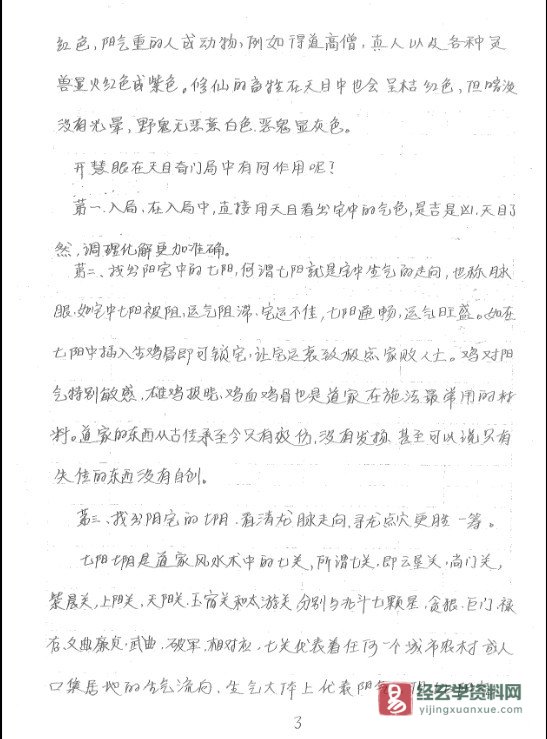 红色，阳气重的人或动物，例如得道高僧，真人以及各种灵
兽呈火红色或紫色。修仙的畜牲在天目中也会呈桔红色，但暗淡
没有光晕，野鬼无恶意白色，恶鬼显灰色。
开慧眼在天目奇门局中有何作用呢？
第一、入局、在入局中，直接用天目看出宅中的气色，是吉是凶，天目了
然，调理化解更加准确。
第二、找出阳宅中的七阳，何谓七阳就是宅中生气的走向，也称脉
眼。如宅中七阳被阻，运气阻滞，宅运不佳，七阳通畅，运气旺盛。如在
七阳中插入生鸡骨即可锁宅，让宅运衰败极点家败人亡。鸡对阳
气特别敏感，雄鸡报晓，鸡血鸡骨也是道家在施法最常用的材
料。道家的东西从古传承至今只有效仿，没有发扬，甚至可以说只有
失传的东西没有自创。
第三、找出阴宅的七阴，看清龙脉走向，寻龙点穴更胜一筹。
七阳七阴是道家风水术中的七关，所谓七关，即云星关，尚门关，
紫晨关，上阳关，天阳关，玉宿关和太游关，分别与北斗七颗星，贪狼、巨门、禄
存、文曲、廉贞、武曲、破军，相对应，七关代表着任何一个城市农村或人
口集居地的生气流向，生气大体上代表阴气
3
经玄学资料网
yijingxuanxue.com